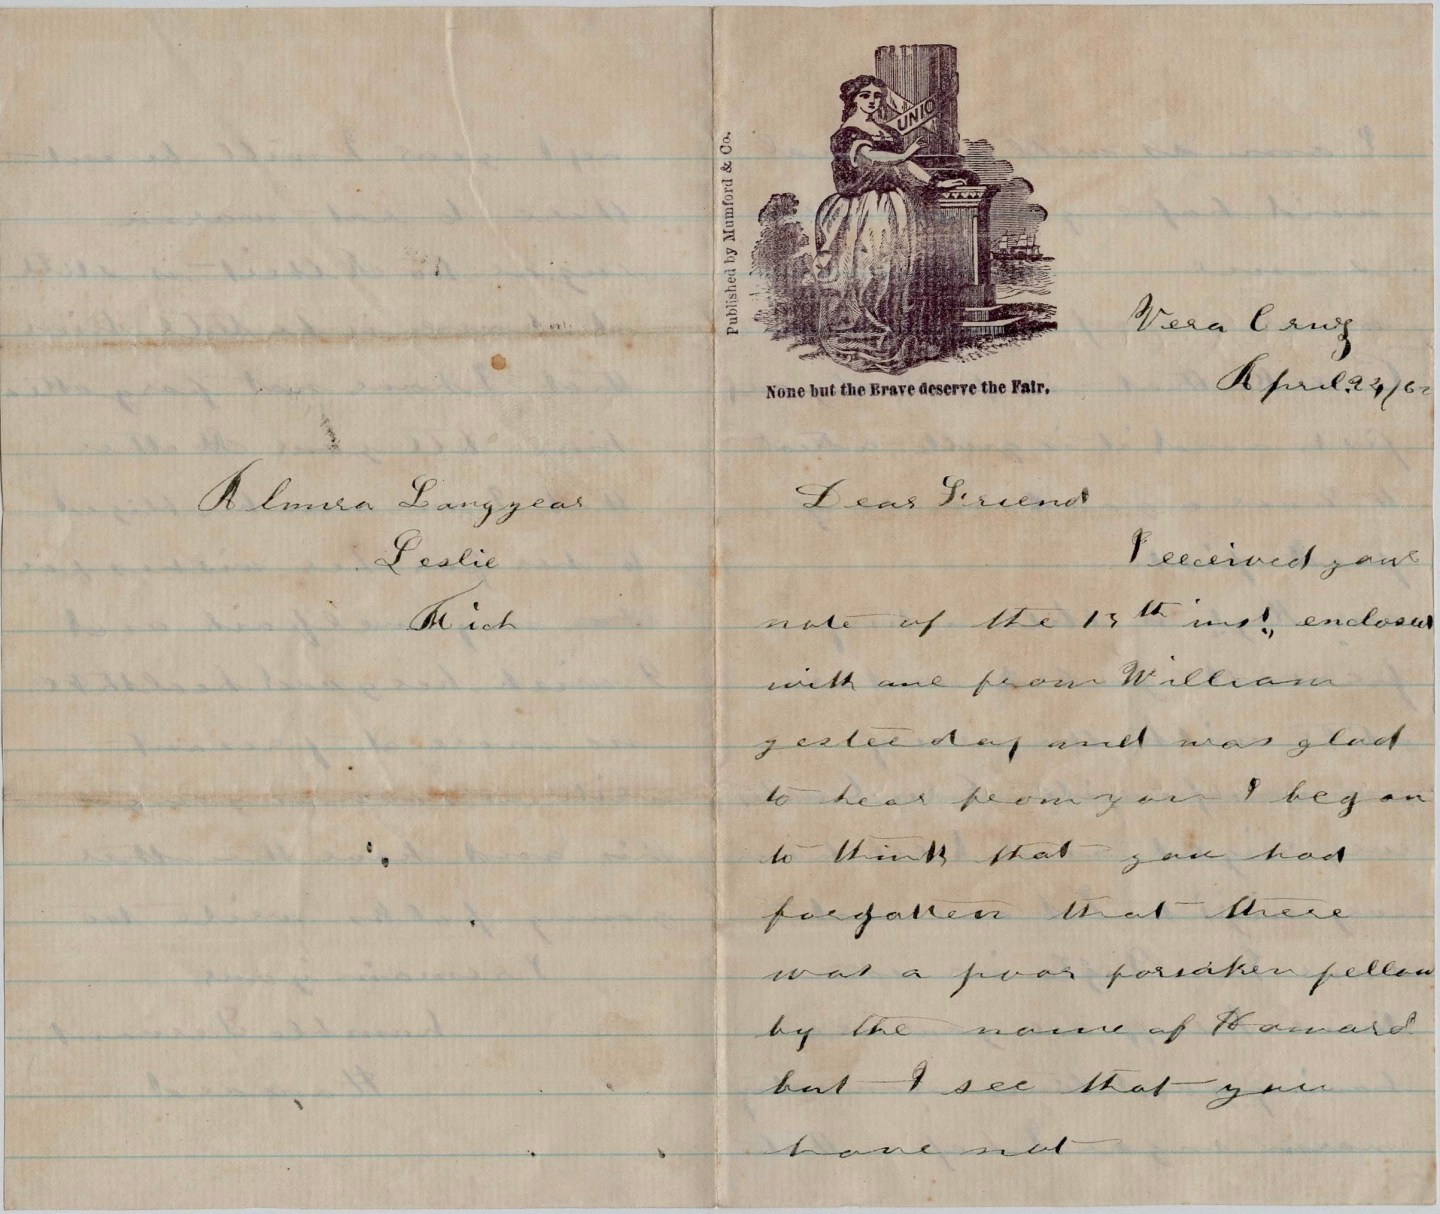 Almira Langyear
Leslie
Mich
Published by Mumford & Co.
UNIO
None but the Brave deserve the Fair.
Vera Cruz
April 24/62
Dear Friend
I received your
note of the 15th inst., enclosed
with one from William
yesterday and was glad
to hear from you I began
to think that you had
forgotten that there
was a poor forsaken fellow
by the name of Howard
but I see that you
have not